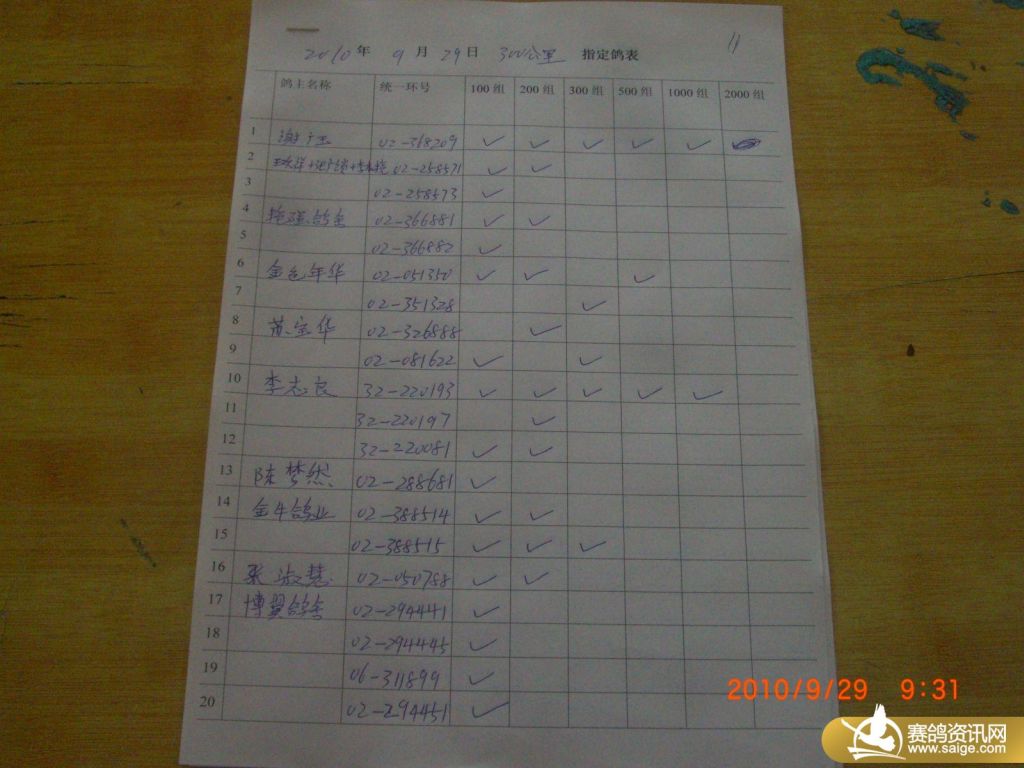 11
2010年 9月 29日 300公里 指定鸽表
鸽主名称 统一环号 100组 200组 300组 500组 1000组 2000组
1 谢广玉 02-318209 ✓ ✓ ✓ ✓ ✓
2 02-258571 ✓ ✓
3 02-258573 ✓
4 02-366881 ✓ ✓
5 02-366882 ✓
6 金色年华 02-051350 ✓ ✓ ✓
7 02-351328 ✓
8 黄宝华 02-326888 ✓
9 02-081622 ✓ ✓
10 李志良 32-220193 ✓ ✓ ✓ ✓ ✓
11 32-220197 ✓
12 32-220081 ✓ ✓
13 陈梦然 02-288681 ✓
14 金牛鸽业 02-388514 ✓ ✓
15 02-388515 ✓ ✓ ✓
16 张淑慧 02-050788 ✓ ✓
17 博翼鸽舍 02-294441 ✓
18 02-294445 ✓
19 06-311899 ✓
20 02-294451 ✓
2010/9/29 9:31
赛鸽资讯网
www.saige.com